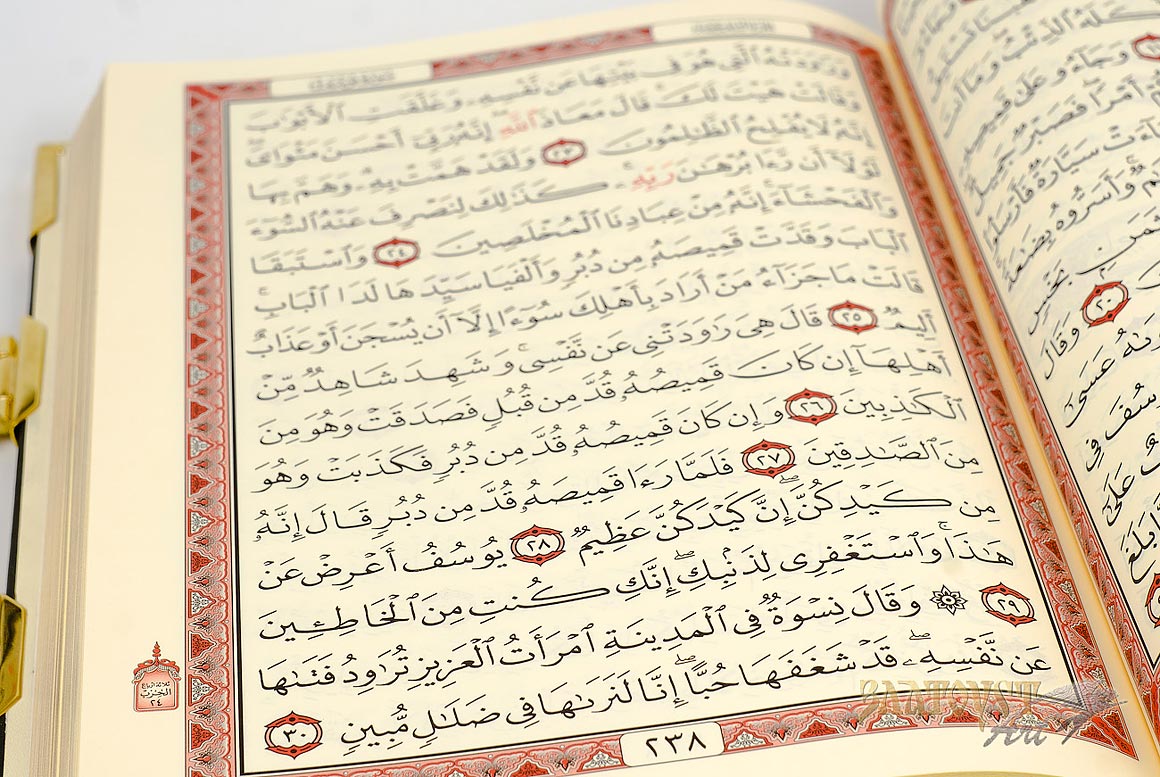 وَرَٰوَدَتْهُ ٱلَّتِى هُوَ فِى بَيْتِهَا عَن نَّفْسِهِۦ وَغَلَّقَتِ ٱلْأَبْوَٰبَ
وَقَالَتْ هَيْتَ لَكَ ۚ قَالَ مَعَاذَ ٱللَّهِ ۖ إِنَّهُۥ رَبِّىٓ أَحْسَنَ مَثْوَاىَ ۖ
إِنَّهُۥ لَا يُفْلِحُ ٱلظَّٰلِمُونَ ٢٣ وَلَقَدْ هَمَّتْ بِهِۦ ۖ وَهَمَّ بِهَا
لَوْلَآ أَن رَّءَا بُرْهَٰنَ رَبِّهِۦ ۚ كَذَٰلِكَ لِنَصْرِفَ عَنْهُ ٱلسُّوٓءَ
وَٱلْفَحْشَآءَ ۚ إِنَّهُۥ مِنْ عِبَادِنَا ٱلْمُخْلَصِينَ ٢٤ وَٱسْتَبَقَا
ٱلْبَابَ وَقَدَّتْ قَمِيصَهُۥ مِن دُبُرٍ وَأَلْفَيَا سَيِّدَهَا لَدَا ٱلْبَابِ ۚ
قَالَتْ مَا جَزَآءُ مَنْ أَرَادَ بِأَهْلِكَ سُوٓءًا إِلَّآ أَن يُسْجَنَ أَوْ عَذَابٌ
أَلِيمٌ ٢٥ قَالَ هِىَ رَٰوَدَتْنِى عَن نَّفْسِى ۚ وَشَهِدَ شَاهِدٌ مِّنْ
أَهْلِهَآ إِن كَانَ قَمِيصُهُۥ قُدَّ مِن قُبُلٍ فَصَدَقَتْ وَهُوَ مِنَ
ٱلْكَٰذِبِينَ ٢٦ وَإِن كَانَ قَمِيصُهُۥ قُدَّ مِن دُبُرٍ فَكَذَبَتْ وَهُوَ
مِنَ ٱلصَّٰدِقِينَ ٢٧ فَلَمَّا رَءَا قَمِيصَهُۥ قُدَّ مِن دُبُرٍ قَالَ إِنَّهُۥ
مِن كَيْدِكُنَّ ۖ إِنَّ كَيْدَكُنَّ عَظِيمٌ ٢٨ يُوسُفُ أَعْرِضْ عَنْ
هَٰذَا ۚ وَٱسْتَغْفِرِى لِذَنۢبِكِ ۖ إِنَّكِ كُنتِ مِنَ ٱلْخَاطِـِٔينَ
٢٩ ۞ وَقَالَ نِسْوَةٌ فِى ٱلْمَدِينَةِ ٱمْرَأَتُ ٱلْعَزِيزِ تُرَٰوِدُ فَتَىٰهَا
عَن نَّفْسِهِۦ ۖ قَدْ شَغَفَهَا حُبًّا ۖ إِنَّا لَنَرَىٰهَا فِى ضَلَٰلٍ مُّبِينٍ ٣٠
٢٣٨
ثلاثة ارباع
الحزب
٢٤
وَجَآءُو عَلَىٰ قَمِيصِهِۦ
أَمْرًا ۖ فَصَبْرٌ جَمِيلٌ
سَيَّارَةٌ فَأَرْسَلُوا۟
وَأَسَرُّوهُ بِضَٰعَةً
بِثَمَنٍۭ بَخْسٍ
٢٠ وَقَالَ
عَسَىٰٓ
Art